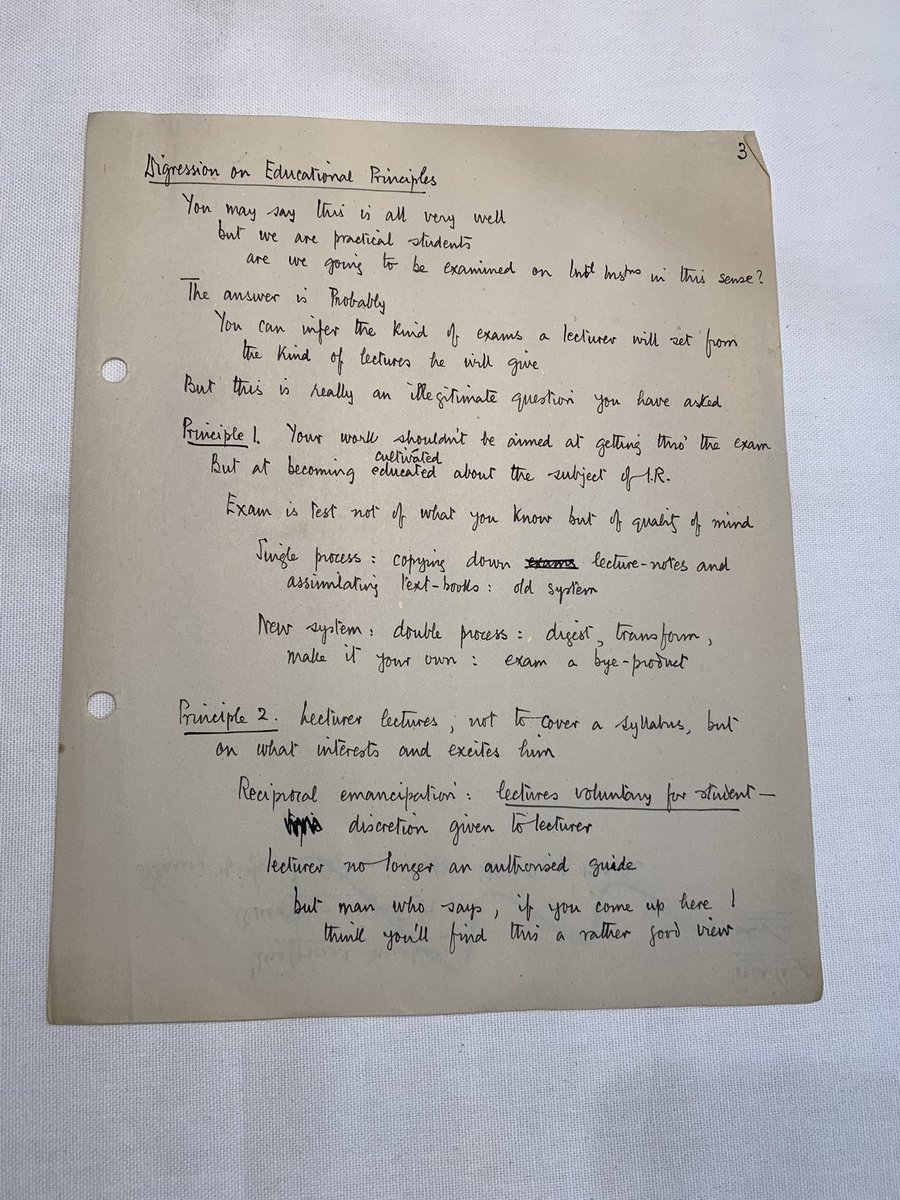 3
Digression on Educational Principles
You may say this is all very well
but we are practical students
are we going to be examined on Intl Instns in this sense?
The answer is Probably
You can infer the kind of exams a lecturer will set from
the kind of lectures he will give
But this is really an illegitimate question you have asked
Principle 1. Your work shouldn't be aimed at getting thro' the exam
cultivated
But at becoming educated about the subject of I.R.
Exam is test not of what you know but of quality of mind
Single process: copying down exams lecture-notes and
assimilating text-books: old system
New system: double process: digest, transform,
make it your own: exam a bye-product
Principle 2. Lecturer lectures, not to cover a syllabus, but
on what interests and excites him
Reciprocal emancipation: lectures voluntary for student—
discretion given to lecturer
lecturer no longer an authorised guide
but man who says, if you come up here I
think you'll find this a rather good view